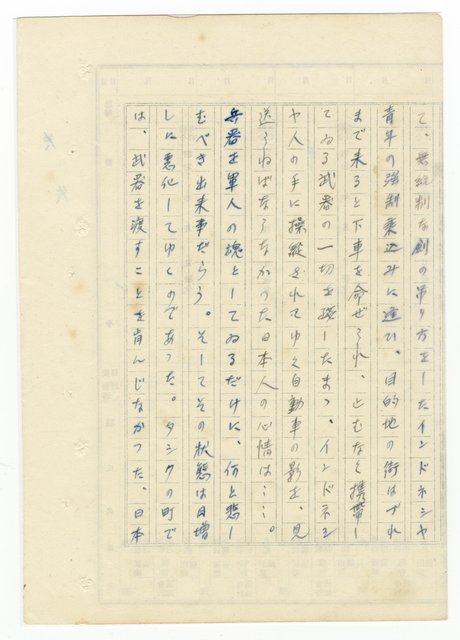 て、無統制な剣の吊り方をしたインドネシヤ
青年の強制乗込みに遭ひ、目的地の街はづれ
まで来ると下車を命ぜられ、止むなく携帯し
てゐる武器の一切を渡したまゝ、インドネシ
ヤ人の手に操縦されてゆく自動車の影を、見
送らねばならなかつた日本人の心情は……。
兵器を軍人の魂としてゐるだけに、何と悲し
むべき出来事だらう。そしてその状態は日増
しに悪化してゆくのであつた。タシクの町で
は、武器を渡すことを肯んじなかつた、日本